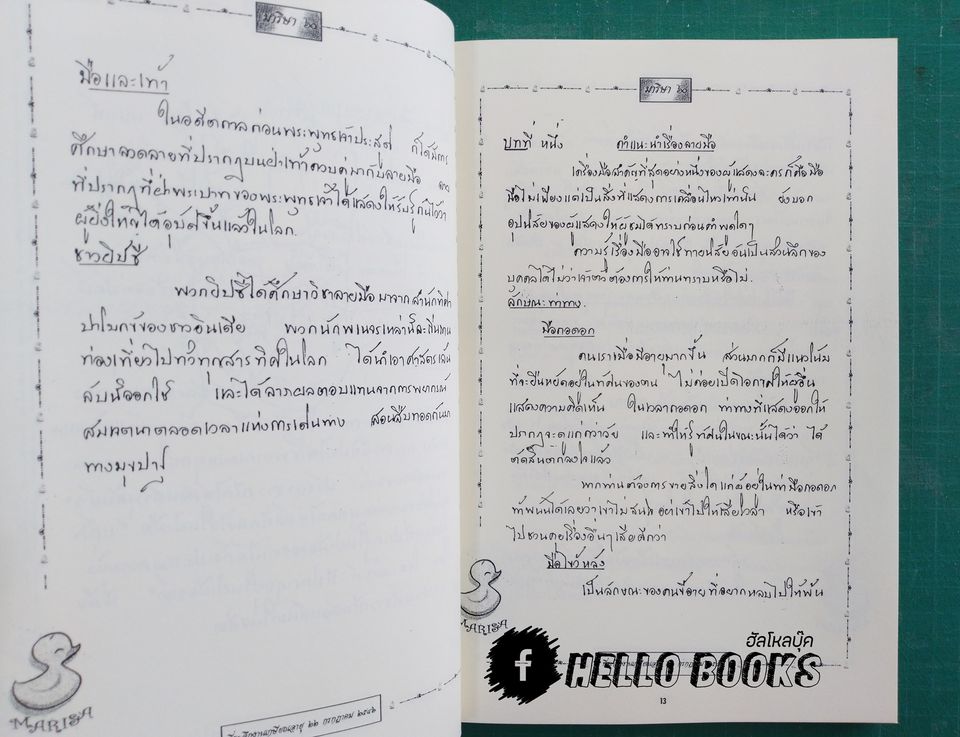 มาริษา ๖๐
มือและเท้า
ในอดีตกาลก่อนพระพุทธเจ้าประสูติ ก็ได้มีการ
ศึกษาลวดลายที่ปรากฏบนฝ่าเท้าควบคู่มากับลายมือ
ที่ปรากฏที่ฝ่าพระบาทของพระพุทธเจ้าได้แสดงให้รับรู้กันไว้ว่า
ผู้ยิ่งใหญ่ได้อุบัติขึ้นแล้วในโลก.
ชาวยิปซี
พวกยิปซีได้ศึกษาวิชาลายมือมาจากสำนักทิศา
ปาโมกข์ของชาวอินเดีย พวกนักพเนจรเหล่านี้
ท่องเที่ยวไปทั่วทุกสารทิศในโลก ได้นำเอาศาสตร์เร้น
ลับนี้ออกใช้ และได้ลาภผลตอบแทนจากการพยากรณ์
สมเจตนาตลอดเวลาแห่งการเดินทาง สอนสืบทอดกันมา
ทางมุขปาฐ
MARISA
๒๒ กรกฎาคม
มาริษา ๖๐
บทที่ หนึ่ง คำแนะนำเรื่องลายมือ
เครื่องมือสำคัญที่สุดอย่างหนึ่งของผู้แสดงละครก็คือมือ
มือไม่เพียงแต่เป็นสิ่งที่แสดงการเคลื่อนไหวเท่านั้น ยังบอก
อุปนิสัยของผู้แสดงให้ผู้ชมได้ทราบก่อนคำพูดใดๆ
ความรู้เรื่องมืออาจใช้ทายนิสัยอันเป็นส่วนลึกของ
บุคคลได้ไม่ว่าเจ้าตัวต้องการให้ท่านทราบหรือไม่.
ลักษณะท่าทาง.
มือกอดอก
คนเราเมื่อมีอายุมากขึ้น ส่วนมากก็มีแนวโน้ม
ที่จะยืนหยัดอยู่ในทัศนะของตน ไม่ค่อยเปิดโอกาสให้ผู้อื่น
แสดงความคิดเห็น ในเวลากอดอก ท่าทางที่แสดงออกให้
ปรากฏจะดูแก่กว่าวัย และทำให้รู้ทัศนะในขณะนั้นได้ว่า ได้
ตัดสินตกลงใจแล้ว
หากท่านต้องการขายสิ่งใดแก่ผู้อยู่ในท่ามือกอดอก
ท้าพนันได้เลยว่าเขาไม่สนใจ อย่าเข้าไปให้เสียเวลา หรือเข้า
ไปชวนคุยเรื่องอื่นๆเสียดีกว่า
มือไขว้หลัง
เป็นลักษณะของคนขี้อาย ที่อยากหลบไปให้พ้น
MARISA
ฮัลโหลบุ๊ค
f HELLO BOOKS
13